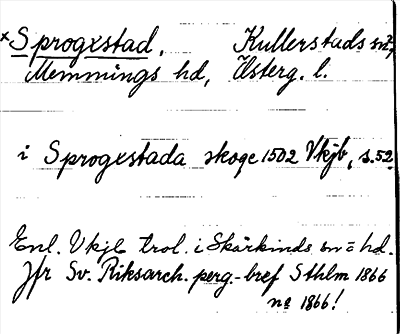 *Sprogxstad, Kullerstads sn,
Memmings hd, Österg. l.
i Sprogxstada skoge 1502 Vkjb, s. 52.
Enl. Vkjb trol. i Skärkinds sn = hd.
Jfr Sv. Riksarch. perg.-bref Sthlm 1866
no 1866!